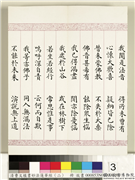 我聞是法音　得所未曾有
心懷大歡喜　疑網皆已除
昔來蒙佛教　不失於大乘
佛音甚希有　能除眾生惱
我已得漏盡　聞亦除憂惱
我處於山谷　或在林樹下
若坐若經行　常思惟是事
嗚呼深自責　云何而自欺
我等亦佛子　同入無漏法
不能於未來　演說無上道
3